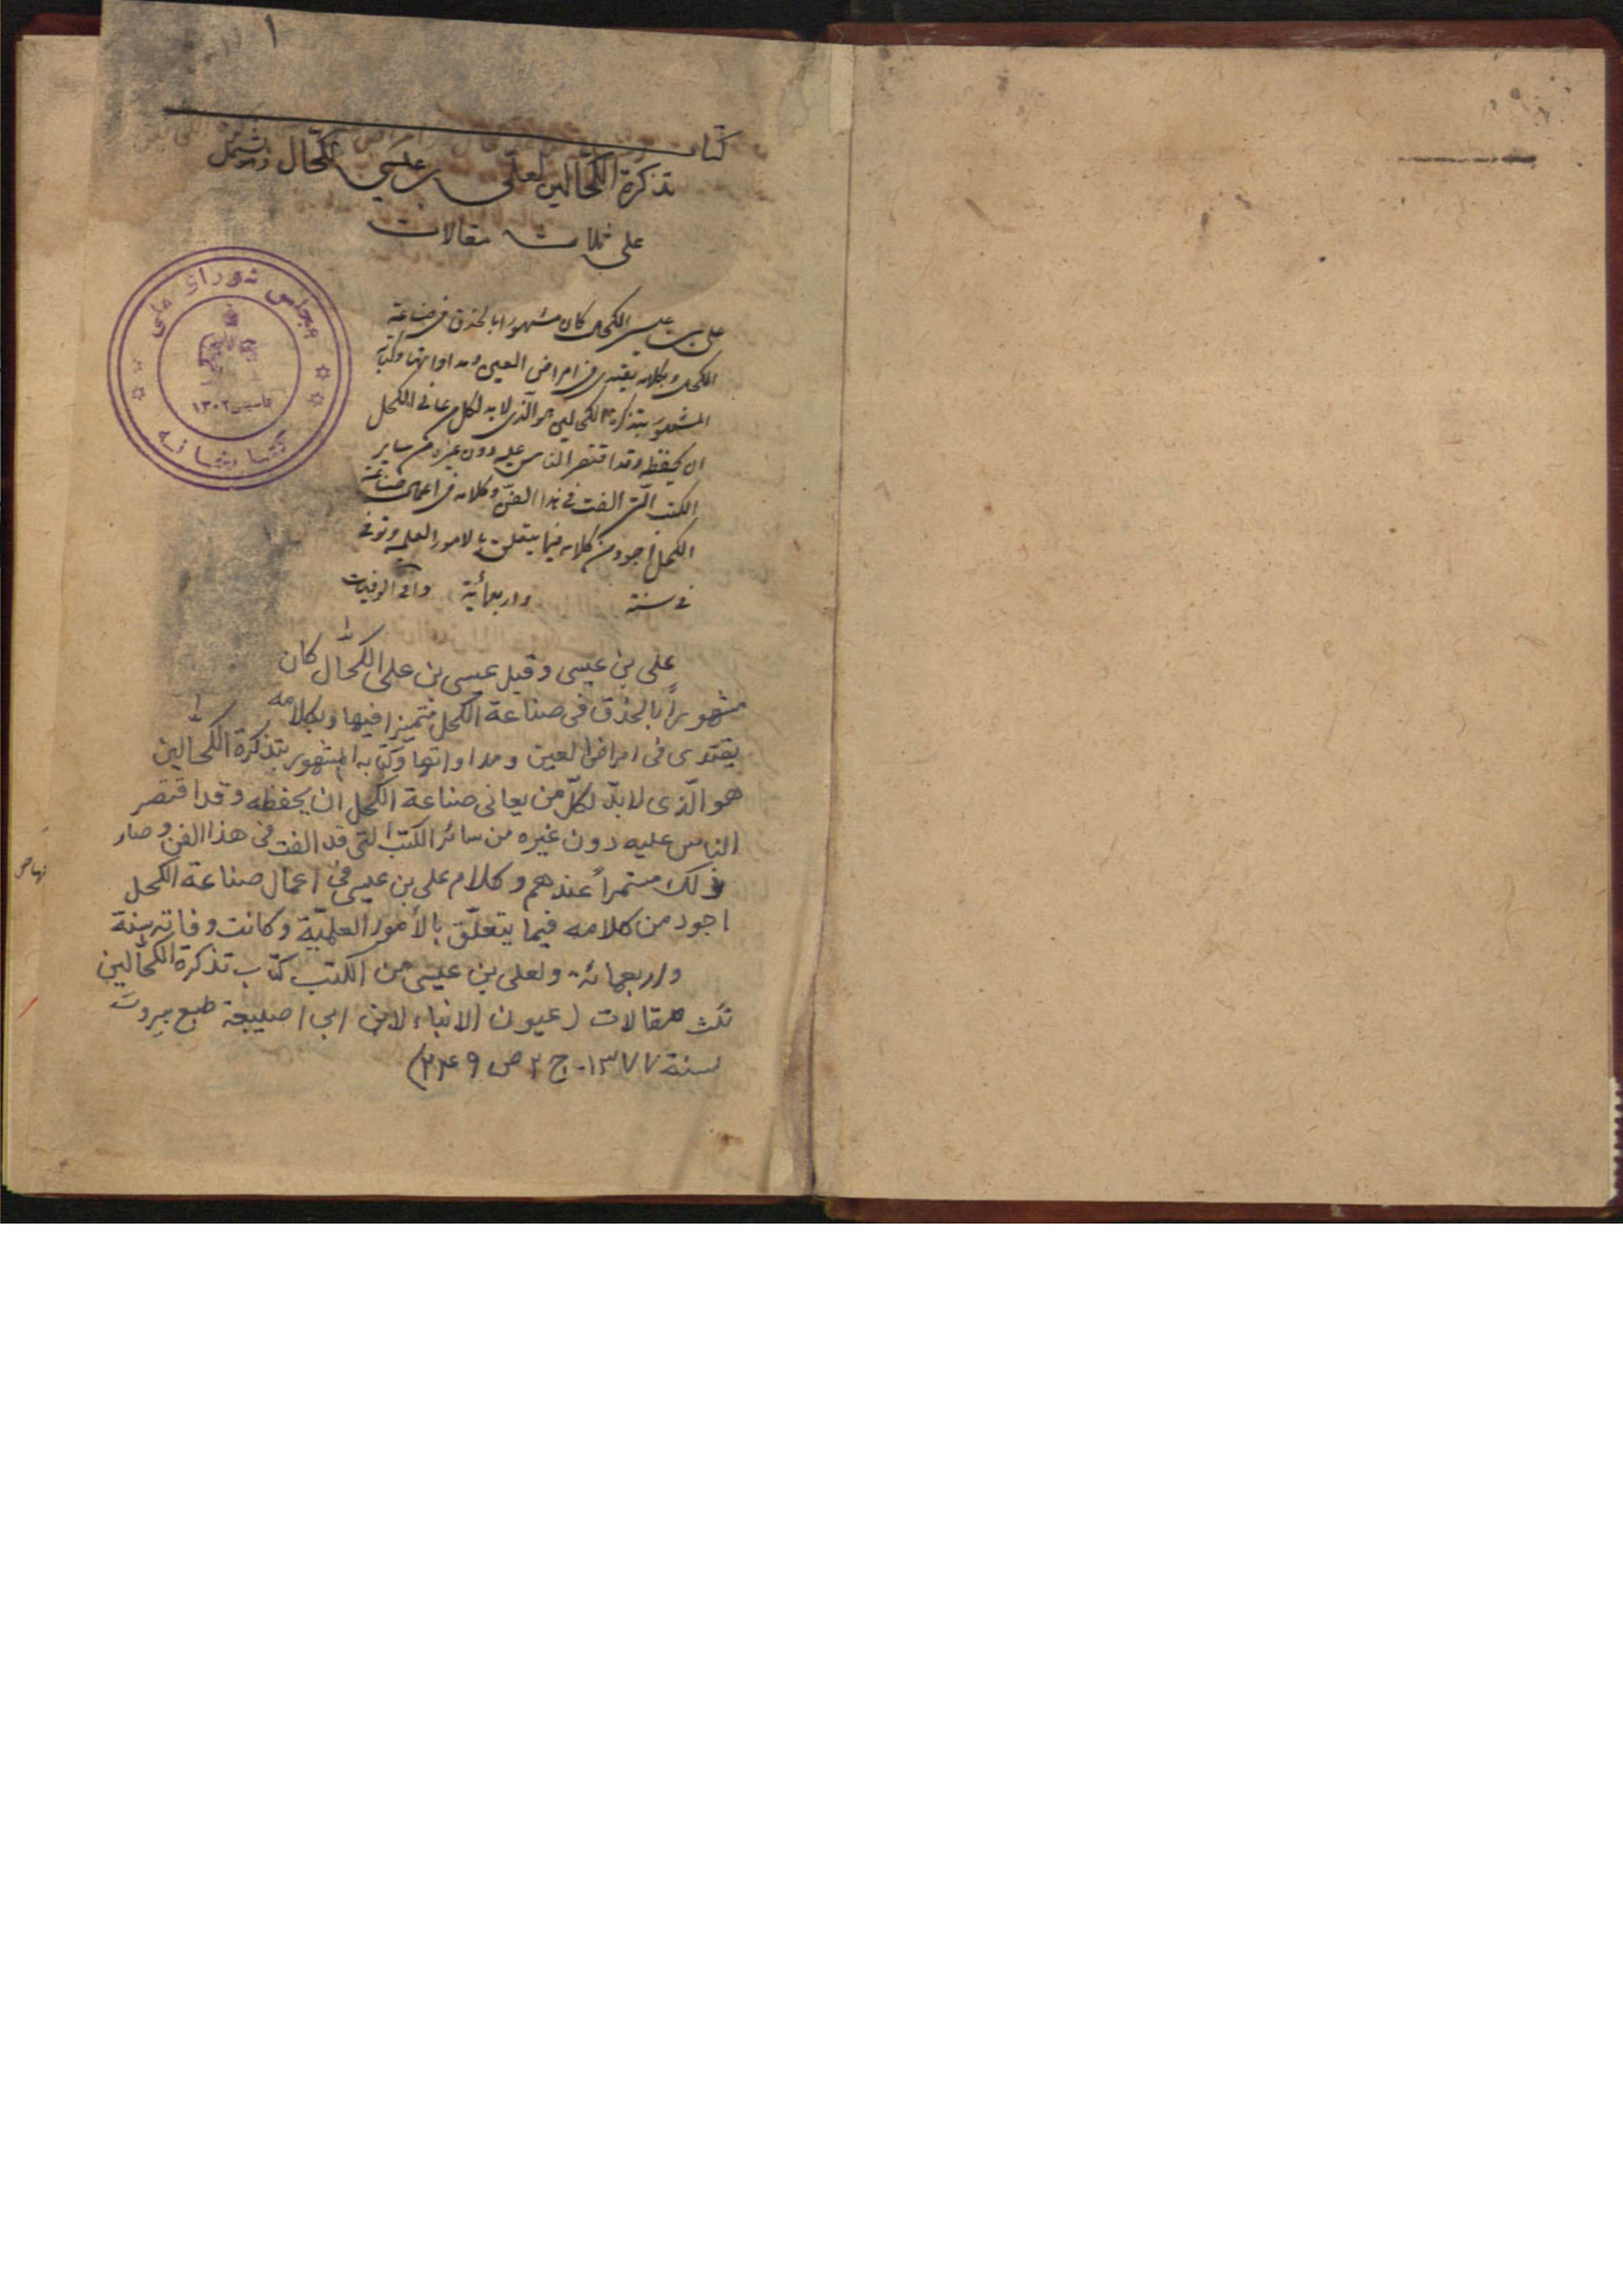 ١
كتاب
تذكرة الكحّالين لعلي بن عيسى الكحّال ويشتمل
على ثلاث مقالات
مجلس شورای ملی
تأسیس ١٣٠٢
کتابخانه
علي بن عيسى الكحال كان مشهورا بالحذق في صناعة
الكحل وبكلامه يقتدى في امراض العين ومداواتها وكتابه
المشهور بتذكرة الكحالين هو الذي لا بد لكل من يعاني الكحل
ان يحفظه وقد اقتصر الناس عليه دون غيره من ساير
الكتب التي الفت في هذا الفنّ وكلامه في اعمال صناعة
الكحل اجود من كلامه فيما يتعلق بالامور العلمية وتوفي
في سنة واربعمائة وافي الوفيات
على بن عيسى وقيل عيسى بن على الكحّال كان
مشهوراً بالحذق فى صناعة الكحل متميزا فيها وبكلامه
يقتدى فى امراض العين ومداواتها وكتابه المشهور بتذكرة الكحّالين
هو الّذى لابدّ لكلّ من يعانى صناعة الكحل ان يحفظه وقد اقتصر
الناس عليه دون غيره من سائر الكتب التى قد الفت فى هذا الفن وصار
ذلك مستمراً عندهم وكلام على بن عيسى فى اعمال صناعة الكحل
اجود من كلامه فيما يتعلّق بالأمور العلميّة وكانت وفاته سنة
واربعمائة ولعلى بن عيسى من الكتب كتاب تذكرة الكحّالين
ثلث مقالات (عيون الانباء لابن ابى اصيبعة طبع بيروت
سنة ١٣٧٧. ج ٢ ص ٢٤٩)